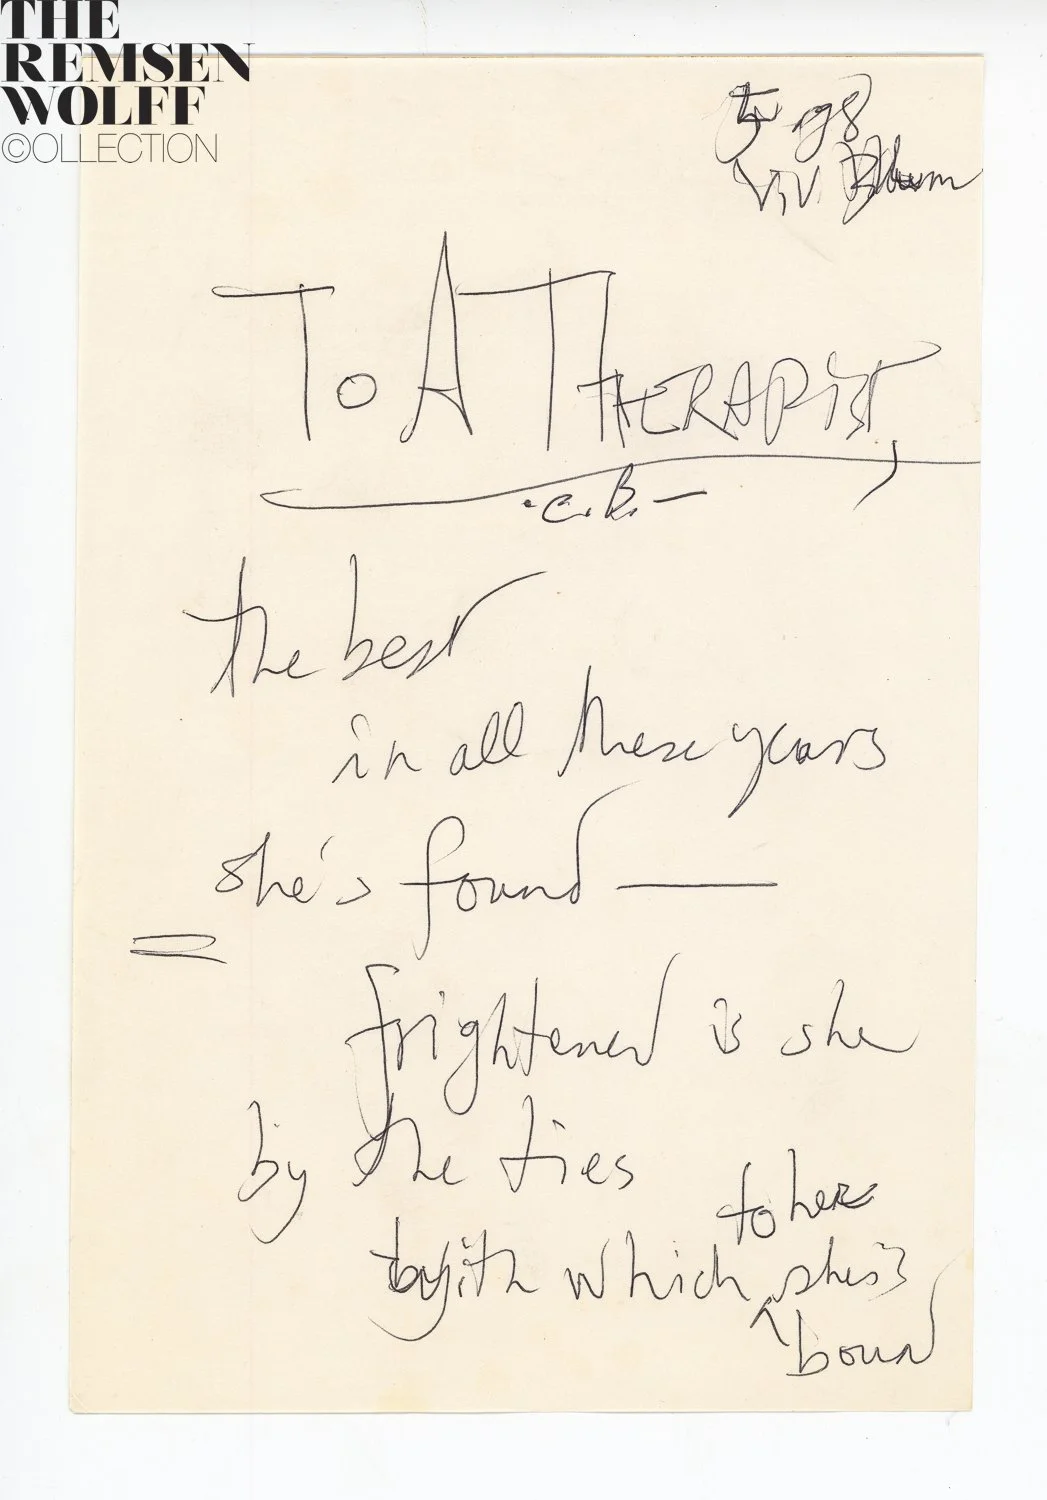 THE
REMSEN
WOLFF
©OLLECTION
pg 8
VIV. Album
TO A THERAPIST,
·C.B.—
the best
in all these years
she's found —
frightened is she
by the ties
to her
with which ^ she's
bound